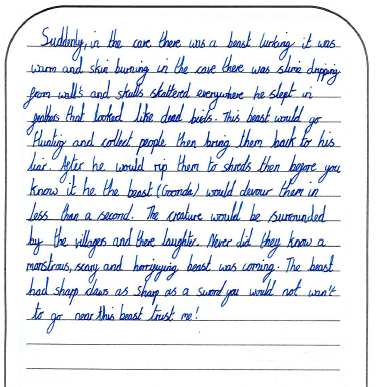 Suddenly, in the cave there was a beast lurking it was
warm and skin burning in the cave there was slime dripping
from wall's and skulls skattered everywhere he slept in
feathers that looked like dead birds. This beast would go
Hunting and collect people then bring them back to his
liar. After he would rip them to shreds then before you
know it he the beast (Goonda) would devour them in
less than a second. The creature would be surrounded
by the villagers and there laughter. Never did they know a
monstrous, scary and horryfying beast was coming. The beast
had sharp claws as sharp as a sword you would not wan't
to go near this beast trust me!